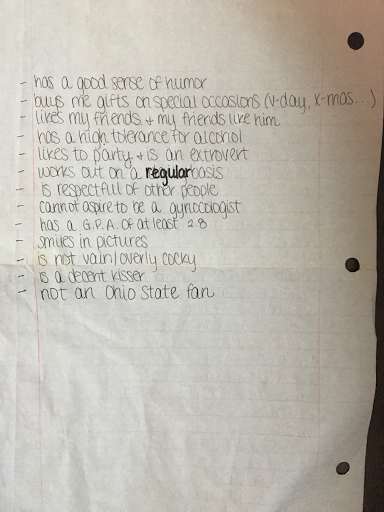 - has a good sense of humor
- buys me gifts on special occasions (V-day, X-mas...)
- likes my friends + my friends like him
- has a high tolerance for alcohol
- likes to party + is an extrovert
- works out on a regular basis
- is respectful of other people
- cannot aspire to be a gynocologist
- has a G.P.A. of at least 2.8
- smiles in pictures
- is not vain/overly cocky
- is a decent kisser
- not an Ohio State fan